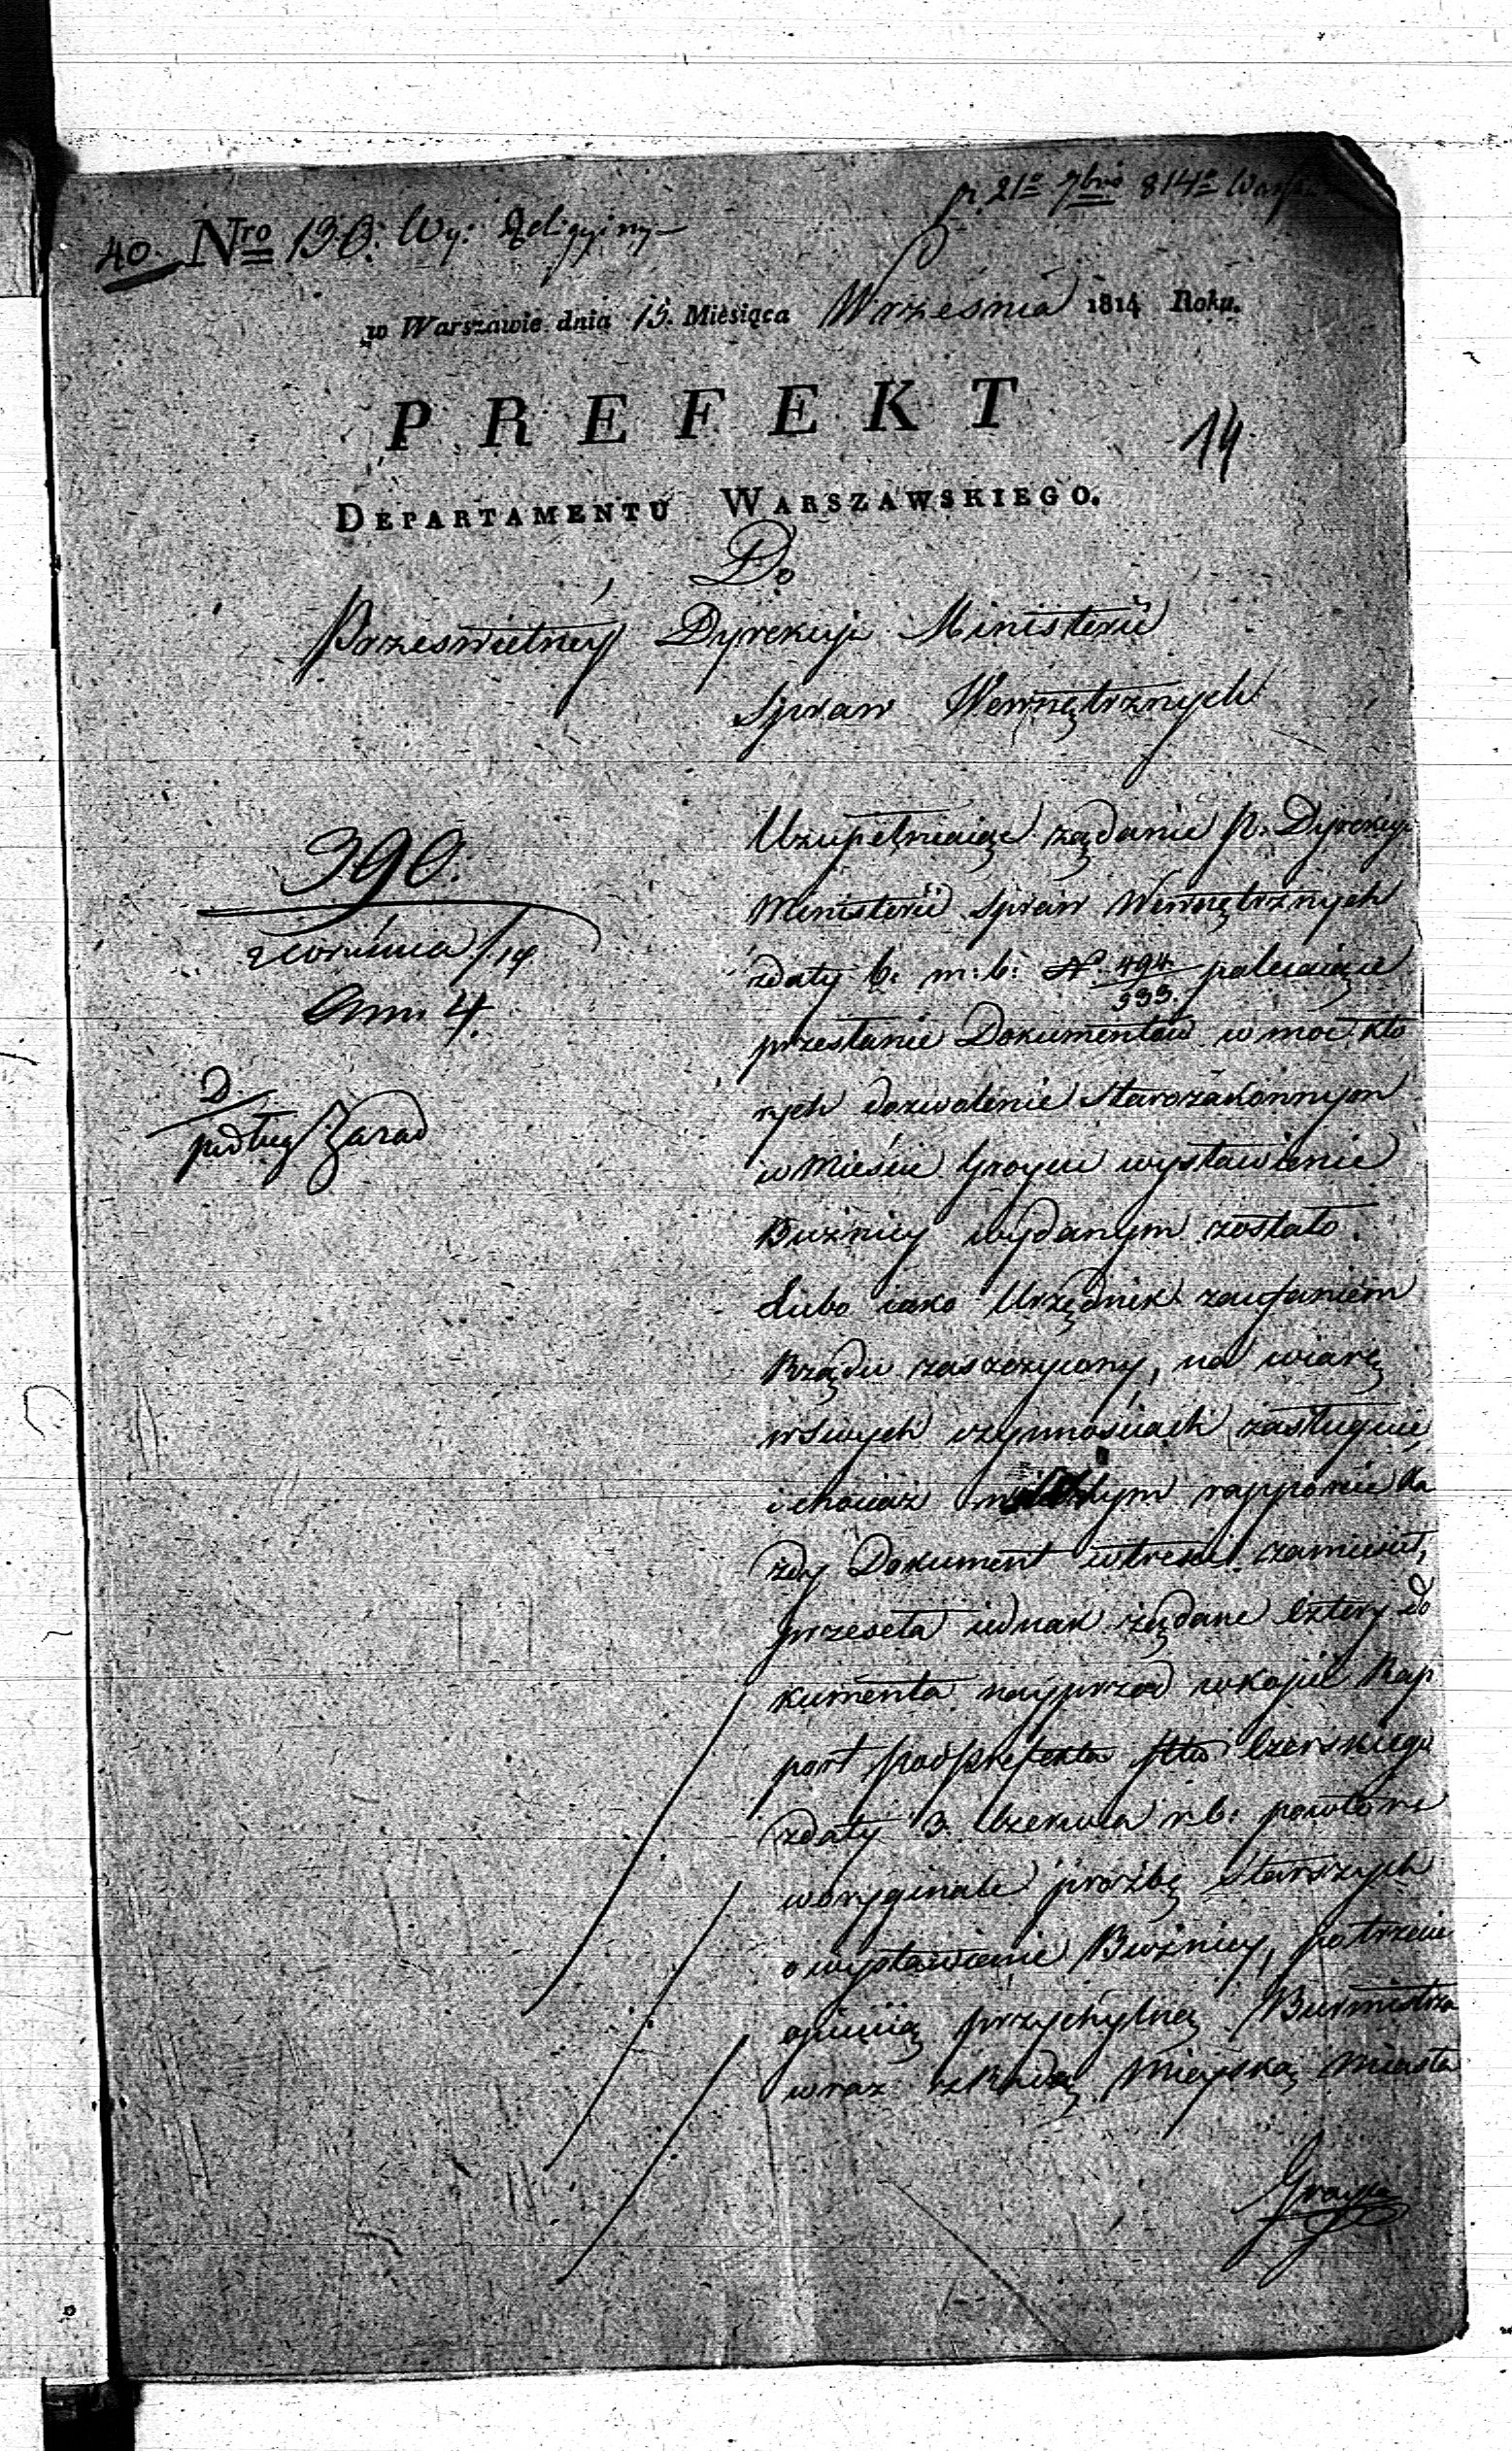 p. 21º 7bris 814º
40. Nro 130. Wy: Religijny
w Warszawie dnia 15. Miesiąca Września 1814 Roku.
PREFEKT
14
DEPARTAMENTU WARSZAWSKIEGO.
Do
Prześwietney Dyrekcyi Ministerii
Spraw Wewnętrznych
390.
Ann: 4.
D
podług Zarad
Uzupełniaiąc rządanie p. Dyrekcyi
Ministerii Spraw Wewnętrznych
zdaty b. m: b: No 494/533 polecaiące
przesłanie Dokumentów w moc kto
rych dozwolenie Starozakonnym
w Mieście Groycu wystawienie
Buźnicy wydanym zostało.
Lubo iako Urzędnik zaufaniem
Rządu zaszczycony, na wiarę
wswych czynnościach zasługuie,
i chociaż tym rapporcie ka
żdy Dokument wtreści zamieścił,
przeseła iednak żądane cztery do
kumenta nayprzód wkopii Rap
port podprefekta Pttu Czerskiego
zdaty 3 Czerwca r.b: powtóre
woryginale prożbę Starszych
o wystawienie Buźnicy, potrzecie
opinią przychylną Burmistrza
wraz z Radą Mieyską Miasta
Groyca